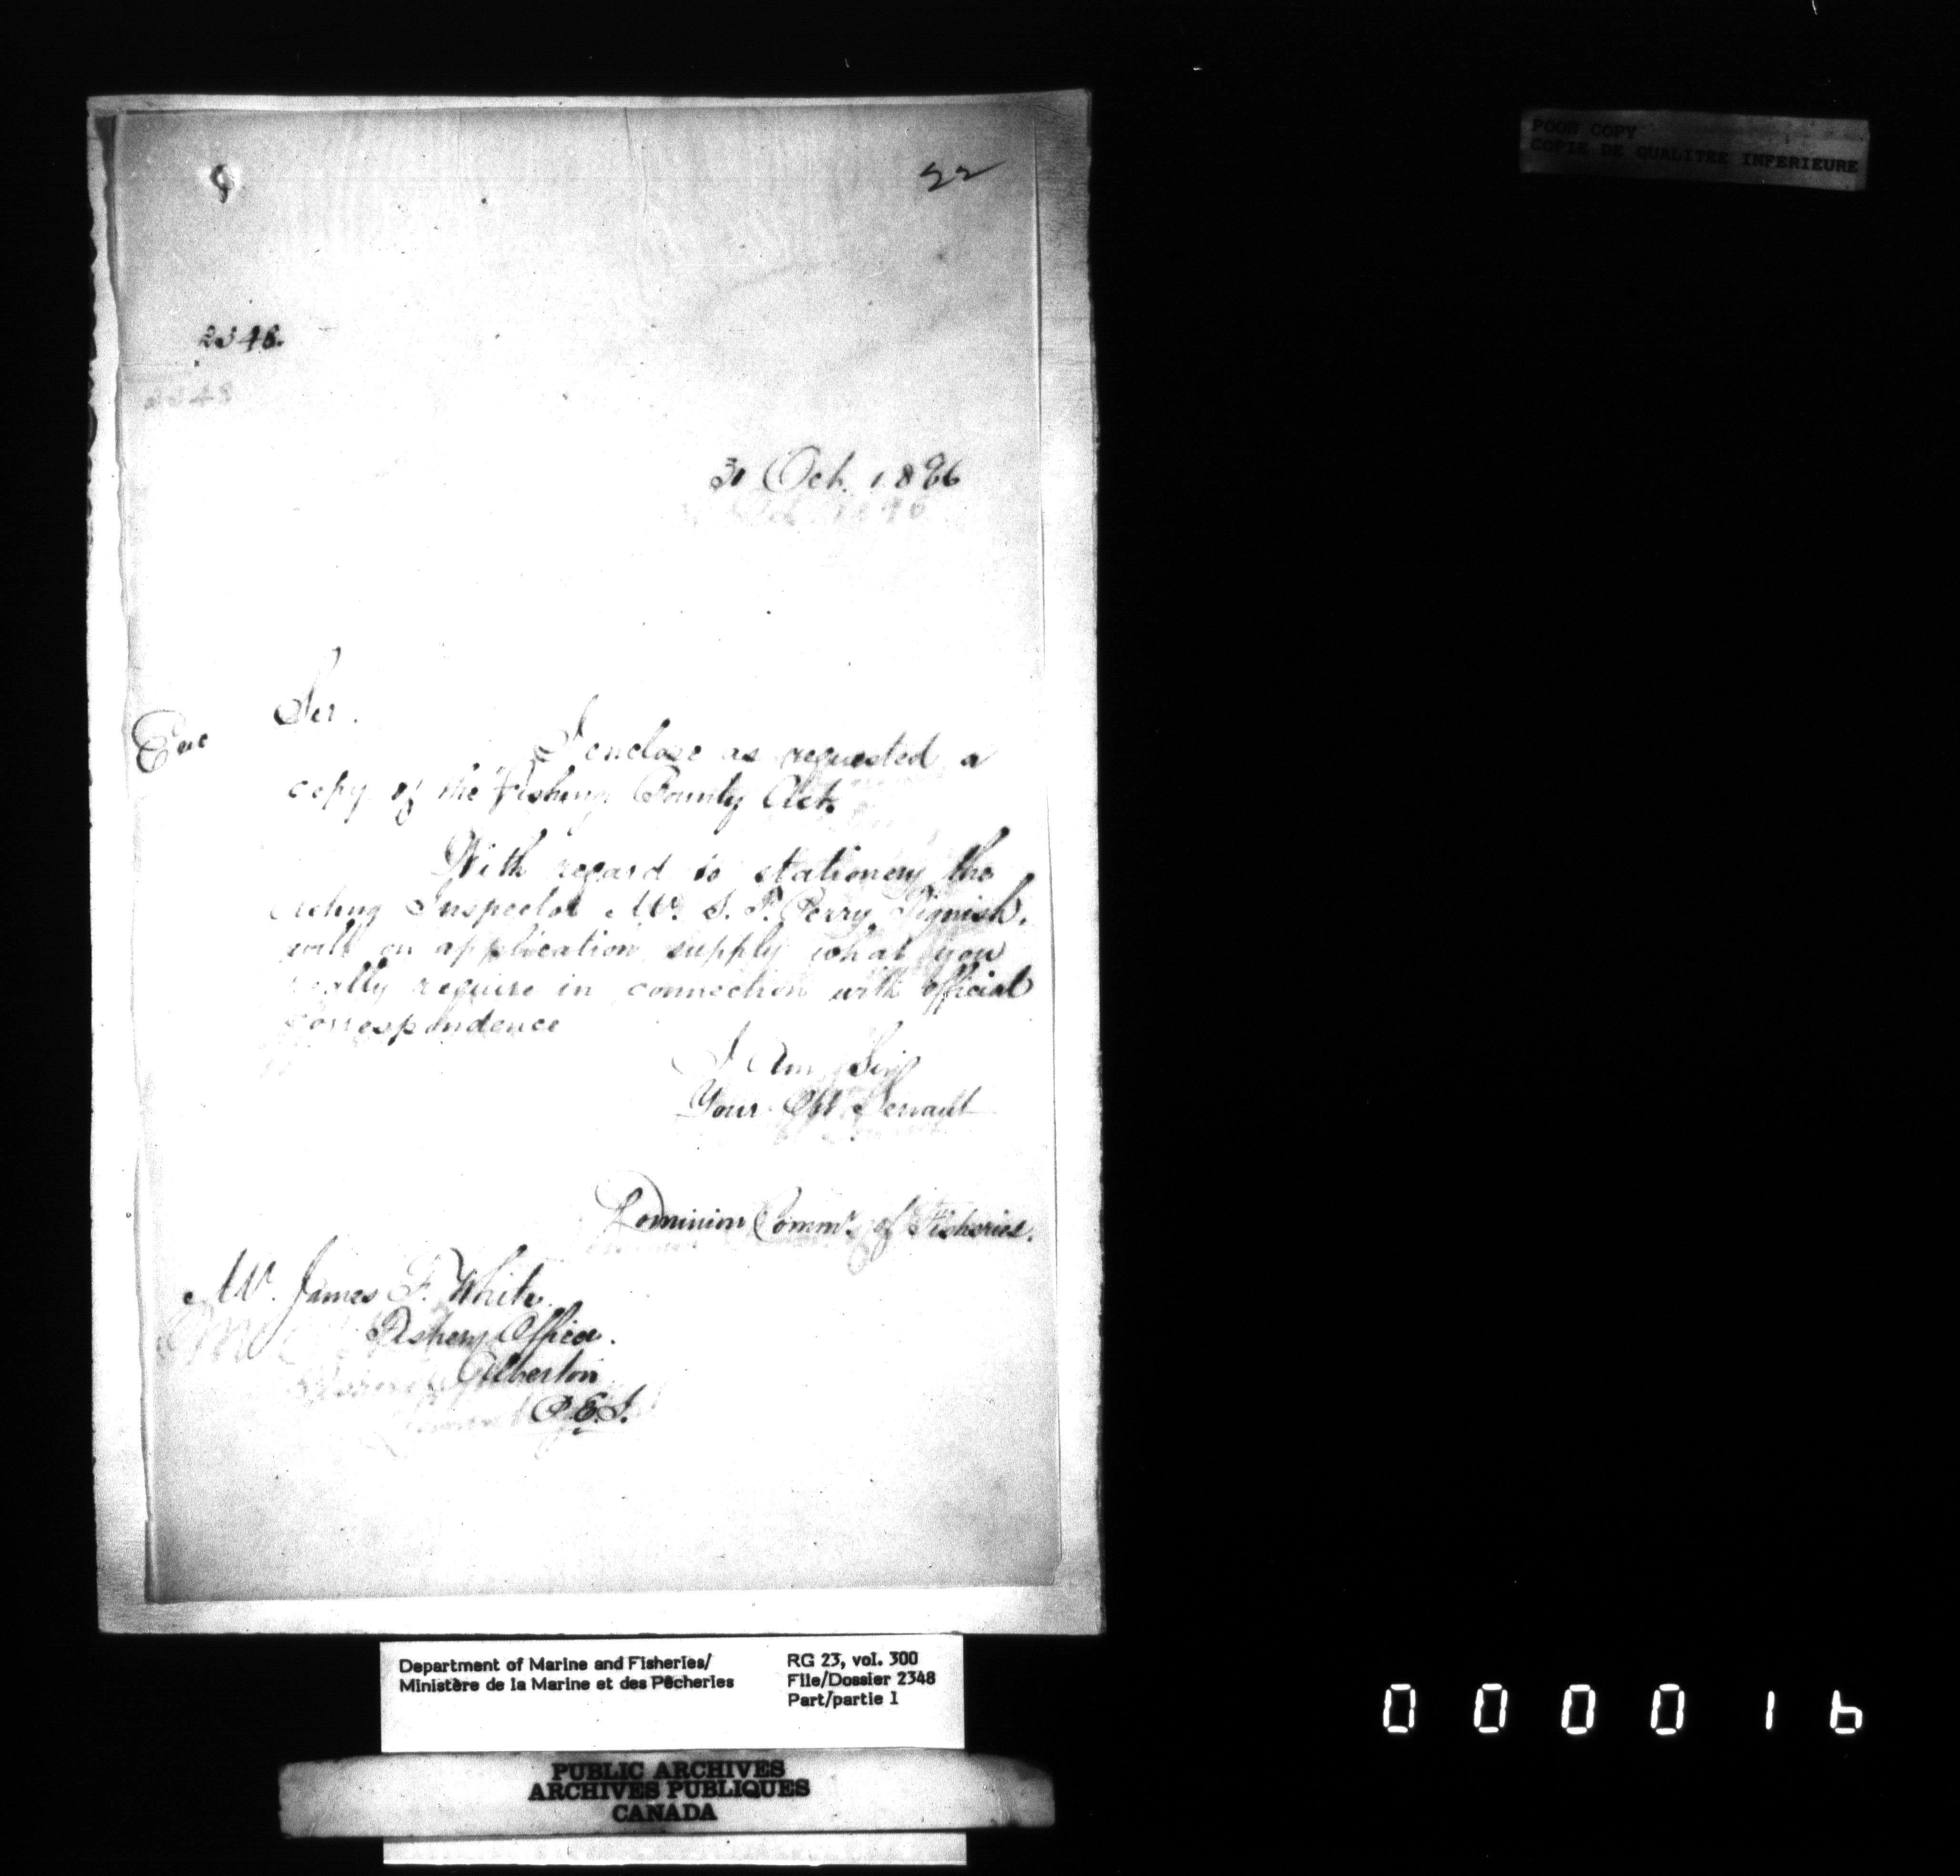 22
POOR COPY
COPIE DE QUALITEE INFERIEURE
2348.
2348
31 Oct. 1896
Oct 1896
Sir.
Enc
I enclose as requested a
copy of the Fishing Bounty Act.
With regard to stationery the
Acting Inspector Mr. S. F. Perry, Tignish.
will on application supply what you
really require in connection with official
correspondence
I Am, Sir,
Your Obt. Servant
Dominion Commr. of Fisheries.
Mr. James F. White
Fishery Officer.
Alberton
P.E.I.
Department of Marine and Fisheries/
Ministère de la Marine et des Pêcheries
RG 23, vol. 300
File/Dossier 2348
Part/partie 1
000016
PUBLIC ARCHIVES
ARCHIVES PUBLIQUES
CANADA